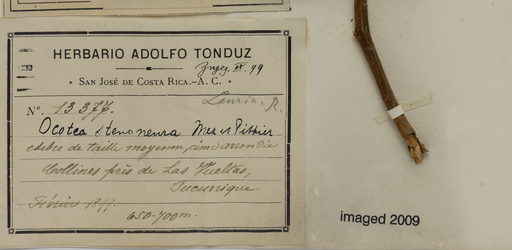 HERBARIO ADOLFO TONDUZ
SAN JOSÉ DE COSTA RICA.-A. C.
Nº. 13377.
Ocotea stenoneura Mez et Pittier
arbre de taille moyenne, cime arrondie
Collines près de Las Vueltas,
Tucurrique.
Février 1899.
650-700m.
imaged 2009